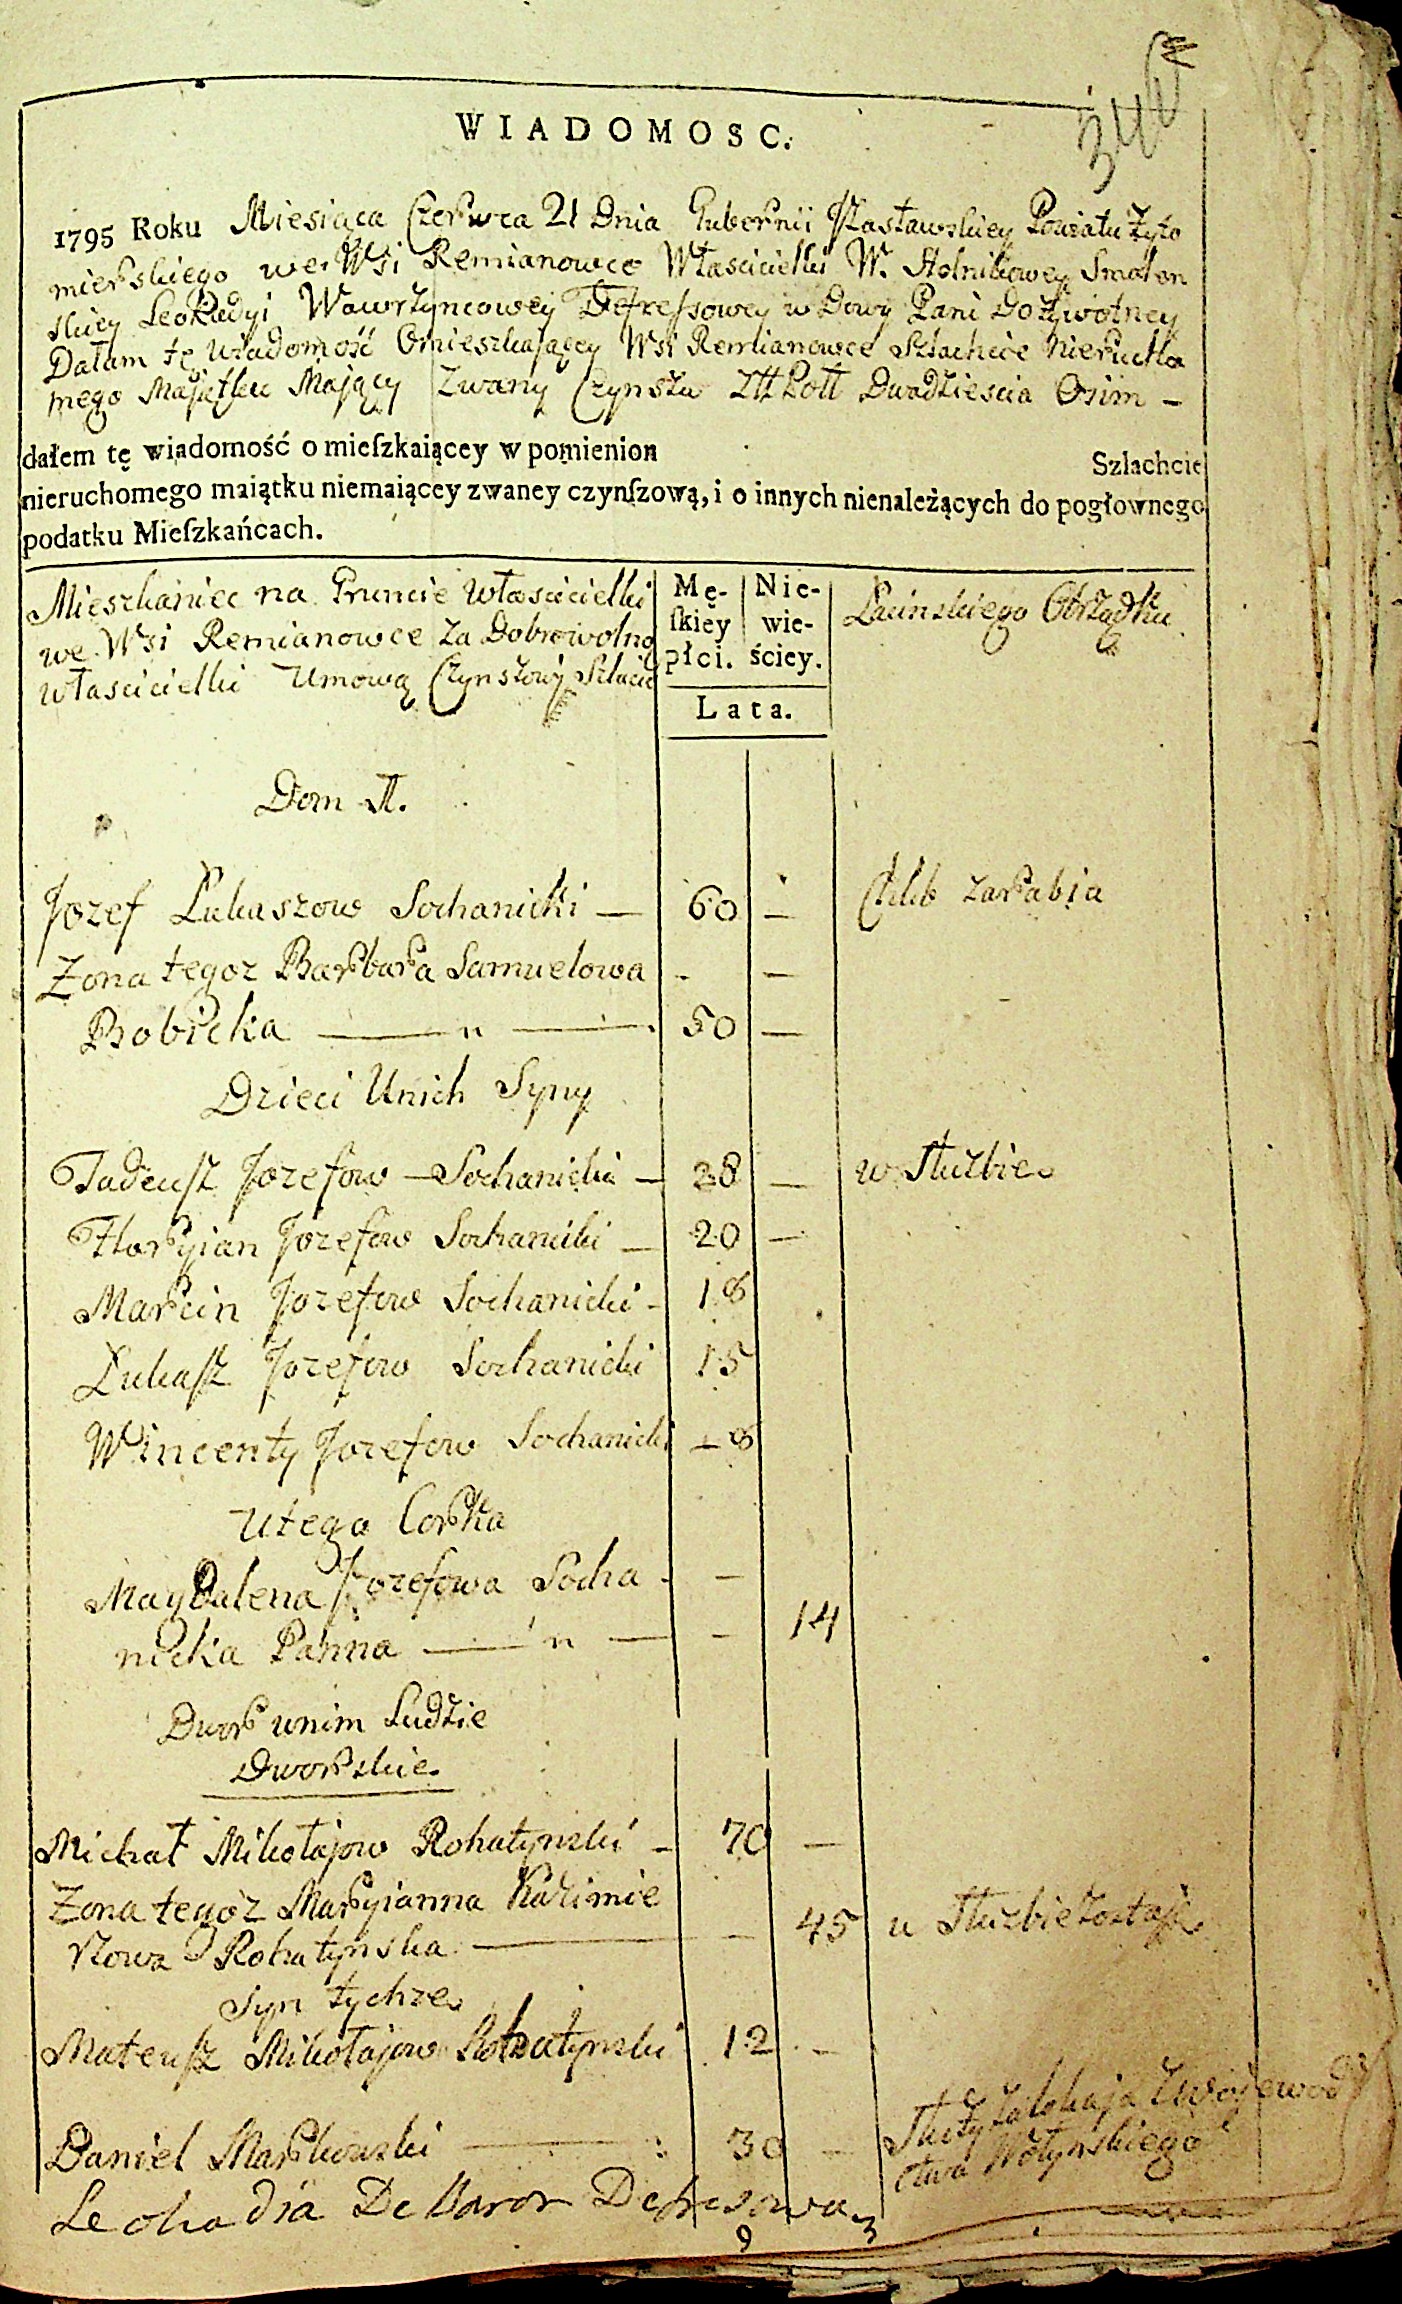 WIADOMOSC.
1795 Roku Miesiąca Czerwca 21 Dnia Gubernii Zasławskiey Powiatu Żyto
mierskiego we Wsi Remianowce Włascicielki W. Stolnikowey Smolen
skiey Leokadyi Wawrzyncowey Defressowey w Dowy Pani Dożywotney
Dałam tę wiadomość Omieszkającey Wsi Remianowce Szlachcie Nierucho
mego Majątku Mający zwany Czynszu Dwadziescia Osim —
dałem tę wiadomość o mieſzkaiącey w pomienion Szlachcie
nieruchomego maiątku niemaiącey zwaney czynſzową, i o innych nienależących do pogłownego
podatku Mieſzkańcach.
Mieszkaniec na Gruncie włascicielki
we Wsi Remianowce za Dobrowolną
włascicielki Umową Czynszowy Szlachc
Mę-
ſkiey
płci.
Nie-
wie-
ściey.
Lata.
Łacinskiego Obrządku
Dom 1.
Jozef Łukaszow Sochanicki — 60 — Chleb zarabia
Zona tegoz Barbara Samuelowa - —
Bobicka — " — 50 —
Dzieci Unich Syny
Tadeusz Jozefow — Sochanicki — 28 — w Służbie
Floryian Jozefow Sochanicki — 20 —
Marcin Jozefow Sochanicki - 18
Łukasz Jozefow Sochanicki 15
Wincenty Jozefow Sochanicki — 8
Utego Corka
Magdalena Jozefowa Socha - —
nicka Panna — " — - 14
Dwor unim Ludzie
Dworskie
Michał Mikołajow Rohatynski - 70 —
Zona tegoz Maryianna Kazimie
rzowa Rohatynska — - 45 w Służbie zostaje
Syn tychze
Mateusz Mikołajow Rohatynski 12 -
Daniel Markowski — : 30 — Służy za lokaja z Wojewodz
ctwa Wołynskiego
Leokadia De Defresowa
9 3